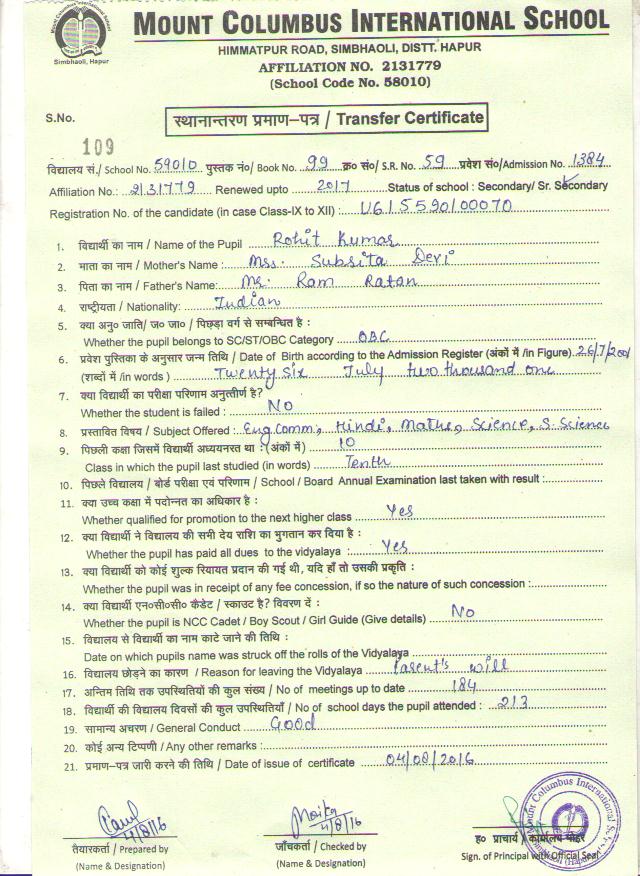 Mount Columbus International School
Simbhaoli, Hapur
MOUNT COLUMBUS INTERNATIONAL SCHOOL
HIMMATPUR ROAD, SIMBHAOLI, DISTT. HAPUR
AFFILIATION NO. 2131779
(School Code No. 58010)
S.No.
स्थानान्तरण प्रमाण–पत्र / Transfer Certificate
109
विद्यालय सं./ School No. 59010 पुस्तक नं०/ Book No. 99 क्र० सं०/ S.R. No. 59 प्रवेश सं०/Admission No. 1384
Affiliation No.: 2131779 Renewed upto 2017 Status of school : Secondary/ Sr. Secondary
Registration No. of the candidate (in case Class-IX to XII) : U615590100070
1. विद्यार्थी का नाम / Name of the Pupil Rohit Kumar
2. माता का नाम / Mother's Name : Mss. Subsita Devi
3. पिता का नाम / Father's Name: Mr. Ram Ratan
4. राष्ट्रीयता / Nationality: Indian
5. क्या अनु० जाति/ ज० जा० / पिछड़ा वर्ग से सम्बन्धित है :
Whether the pupil belongs to SC/ST/OBC Category OBC
6. प्रवेश पुस्तिका के अनुसार जन्म तिथि / Date of Birth according to the Admission Register (अंकों में /in Figure). 26/7/2001
(शब्दों में /in words ) Twenty six July two thousand one
7. क्या विद्यार्थी का परीक्षा परिणाम अनुत्तीर्ण है?
Whether the student is failed : No
8. प्रस्तावित विषय / Subject Offered : Eng. Comm, Hindi, Maths, Science, S. Science
9. पिछली कक्षा जिसमें विद्यार्थी अध्ययनरत था : (अंकों में) 10
Class in which the pupil last studied (in words) Tenth
10. पिछले विद्यालय / बोर्ड परीक्षा एवं परिणाम / School / Board Annual Examination last taken with result :
11. क्या उच्च कक्षा में पदोन्नत का अधिकार है :
Whether qualified for promotion to the next higher class Yes
12. क्या विद्यार्थी ने विद्यालय की सभी देय राशि का भुगतान कर दिया है :
Whether the pupil has paid all dues to the vidyalaya : Yes
13. क्या विद्यार्थी को कोई शुल्क रियायत प्रदान की गई थी, यदि हाँ तो उसकी प्रकृति :
Whether the pupil was in receipt of any fee concession, if so the nature of such concession :
14. क्या विद्यार्थी एन०सी०सी० कैडेट / स्काउट है? विवरण दें :
Whether the pupil is NCC Cadet / Boy Scout / Girl Guide (Give details) No
15. विद्यालय से विद्यार्थी का नाम काटे जाने की तिथि :
Date on which pupils name was struck off the rolls of the Vidyalaya
16. विद्यालय छोड़ने का कारण / Reason for leaving the Vidyalaya Parent's will
17. अन्तिम तिथि तक उपस्थितियों की कुल संख्या / No of meetings up to date 184
18. विद्यार्थी की विद्यालय दिवसों की कुल उपस्थितियाँ / No of school days the pupil attended : 213
19. सामान्य अचरण / General Conduct : Good
20. कोई अन्य टिप्पणी / Any other remarks :
21. प्रमाण–पत्र जारी करने की तिथि / Date of issue of certificate 04/08/2016
4/8/16 4/8/16
तैयारकर्ता / Prepared by जाँचकर्ता / Checked by ह० प्राचार्य / कार्यालय मोहर
(Name & Designation) (Name & Designation) Sign. of Principal with Official Seal
Mount Columbus International School
Simbhaoli (Hapur)